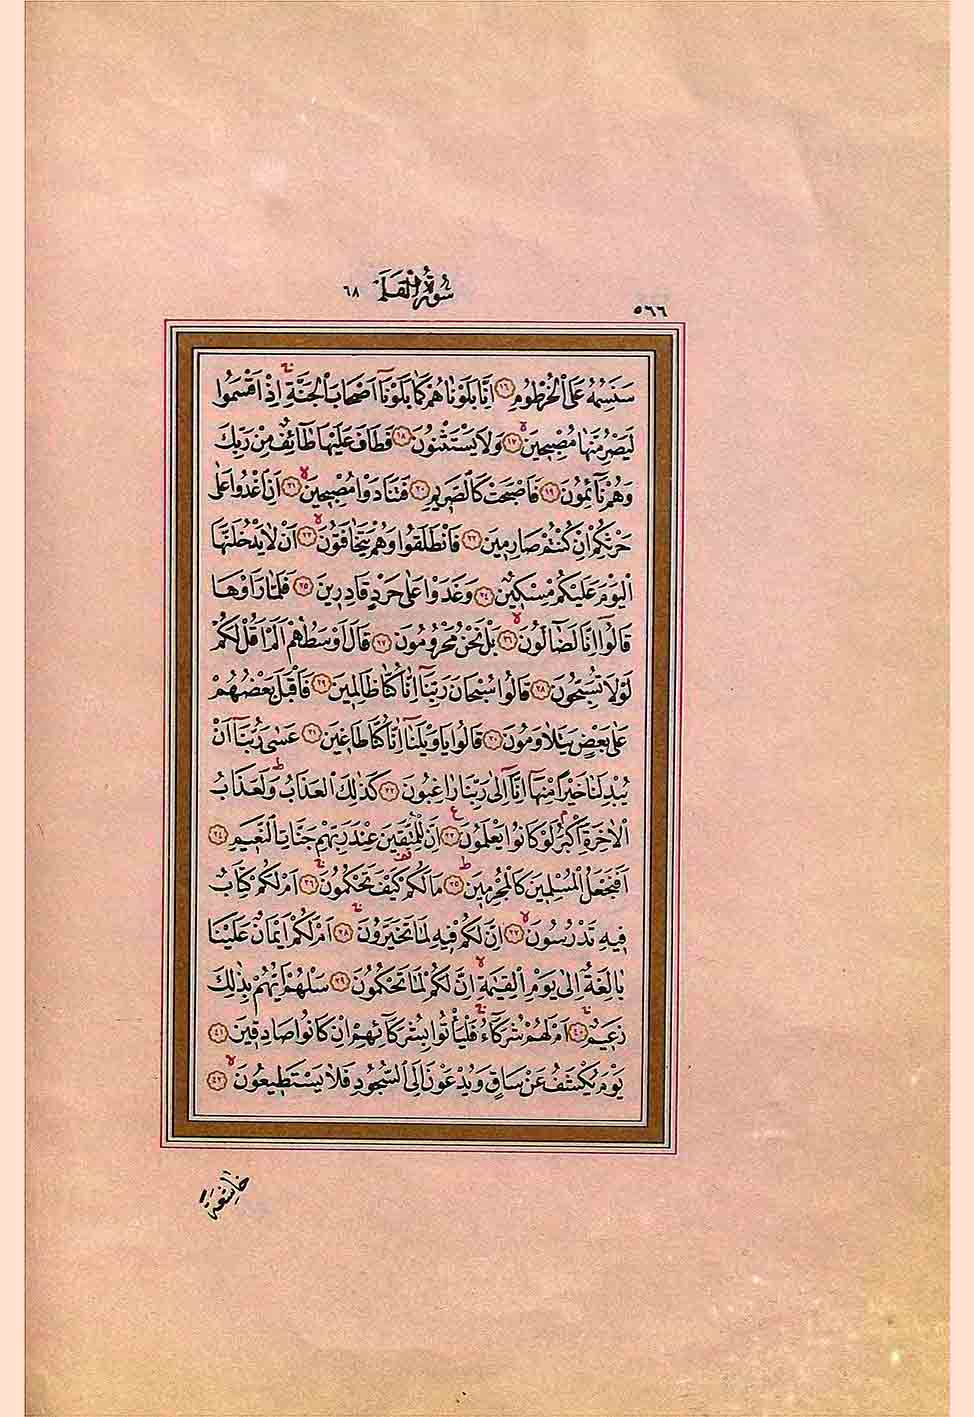 ٥٦٦
سُورَةُ الْقَلَمِ ٦٨
سَنَسِمُهُ عَلَى الْخُرْطُومِ ١٦ اِنَّا بَلَوْنَاهُمْ كَمَا بَلَوْنَٓا اَصْحَابَ الْجَنَّةِۚ اِذْ اَقْسَمُوا
لَيَصْرِمُنَّهَا مُصْبِحٖينَۙ ١٧ وَلَا يَسْتَثْنُونَ ١٨ فَطَافَ عَلَيْهَا طَٓائِفٌ مِنْ رَبِّكَ
وَهُمْ نَٓائِمُونَ ١٩ فَاَصْبَحَتْ كَالصَّرٖيمِ ٢٠ فَتَنَادَوْا مُصْبِحٖينَۙ ٢١ اَنِ اغْدُوا عَلٰى
حَرْثِكُمْ اِنْ كُنْتُمْ صَارِمٖينَ ٢٢ فَانْطَلَقُوا وَهُمْ يَتَخَافَتُونَۙ ٢٣ اَنْ لَا يَدْخُلَنَّهَا
الْيَوْمَ عَلَيْكُمْ مِسْكٖينٌ ٢٤ وَغَدَوْا عَلٰى حَرْدٍ قَادِرٖينَ ٢٥ فَلَمَّا رَاَوْهَا
قَالُٓوا اِنَّا لَضَٓالُّونَۙ ٢٦ بَلْ نَحْنُ مَحْرُومُونَ ٢٧ قَالَ اَوْسَطُهُمْ اَلَمْ اَقُلْ لَكُمْ
لَوْلَا تُسَبِّحُونَ ٢٨ قَالُوا سُبْحَانَ رَبِّنَٓا اِنَّا كُنَّا ظَالِمٖينَ ٢٩ فَاَقْبَلَ بَعْضُهُمْ
عَلٰى بَعْضٍ يَتَلَاوَمُونَ ٣٠ قَالُوا يَا وَيْلَنَٓا اِنَّا كُنَّا طَاغٖينَ ٣١ عَسٰى رَبُّنَٓا اَنْ
يُبْدِلَنَا خَيْرًا مِنْهَٓا اِنَّٓا اِلٰى رَبِّنَا رَاغِبُونَ ٣٢ كَذٰلِكَ الْعَذَابُۜ وَلَعَذَابُ
الْاٰخِرَةِ اَكْبَرُۢ لَوْ كَانُوا يَعْلَمُونَ ٣٣ ع اِنَّ لِلْمُتَّقٖينَ عِنْدَ رَبِّهِمْ جَنَّاتِ النَّعٖيمِ ٣٤
اَفَنَجْعَلُ الْمُسْلِمٖينَ كَالْمُجْرِمٖينَۜ ٣٥ مَا لَكُمْ كَيْفَ تَحْكُمُونَۚ ٣٦ اَمْ لَكُمْ كِتَابٌ
فٖيهِ تَدْرُسُونَۙ ٣٧ اِنَّ لَكُمْ فٖيهِ لَمَا تَخَيَّرُونَۚ ٣٨ اَمْ لَكُمْ اَيْمَانٌ عَلَيْنَا
بَالِغَةٌ اِلٰى يَوْمِ الْقِيٰمَةِۙ اِنَّ لَكُمْ لَمَا تَحْكُمُونَ ٣٩ سَلْهُمْ اَيُّهُمْ بِذٰلِكَ
زَعٖيمٌۚ ٤٠ اَمْ لَهُمْ شُرَكَٓاءُۚ فَلْيَأْتُوا بِشُرَكَٓائِهِمْ اِنْ كَانُوا صَادِقٖينَ ٤١
يَوْمَ يُكْشَفُ عَنْ سَاقٍ وَيُدْعَوْنَ اِلَى السُّجُودِ فَلَا يَسْتَطٖيعُونَۙ ٤٢
خَاشِعَةً